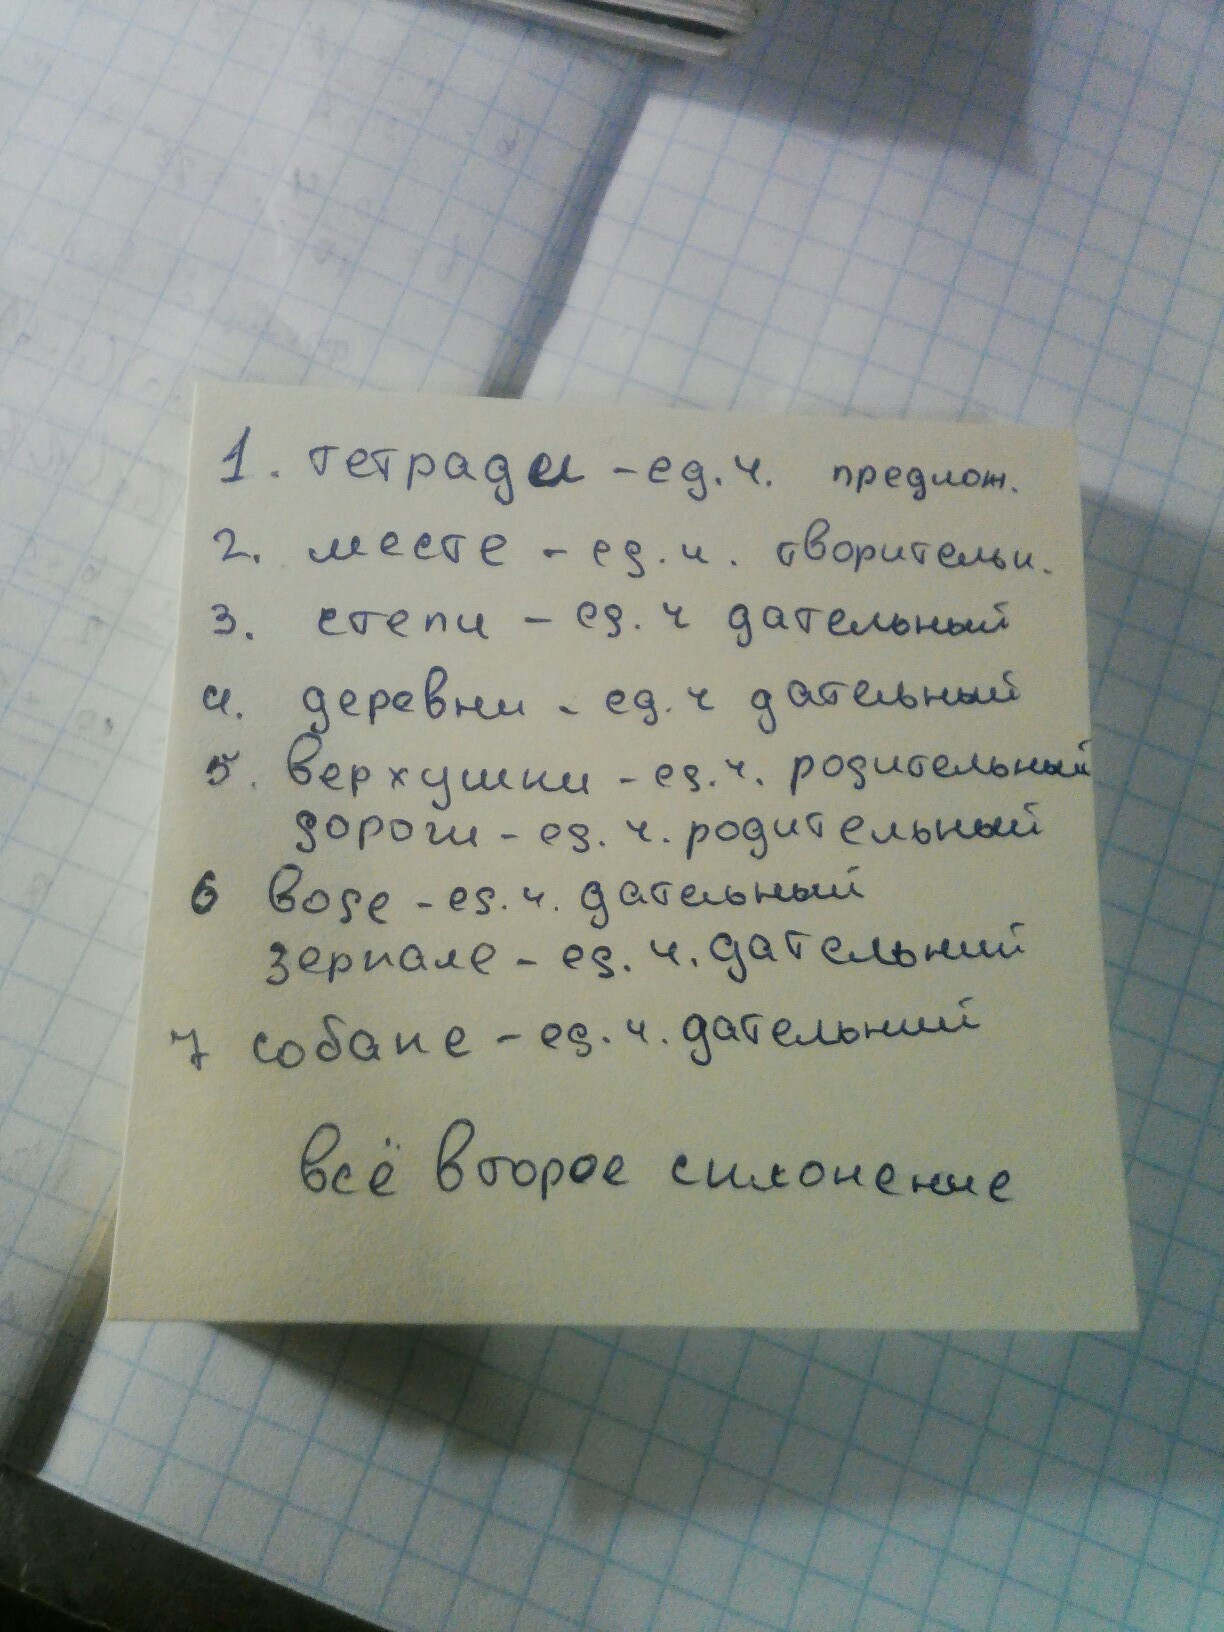 1. тетради - ед. ч. предлож.
2. месте - ед. ч. творительн.
3. степи - ед. ч дательный
4. деревни - ед. ч дательный
5. верхушки - ед. ч. родительный
дороги - ед. ч. родительный
6 воде - ед. ч. дательный
зеркале - ед. ч. дательний
7 собаке - ед. ч. дательний
всё второе склонение